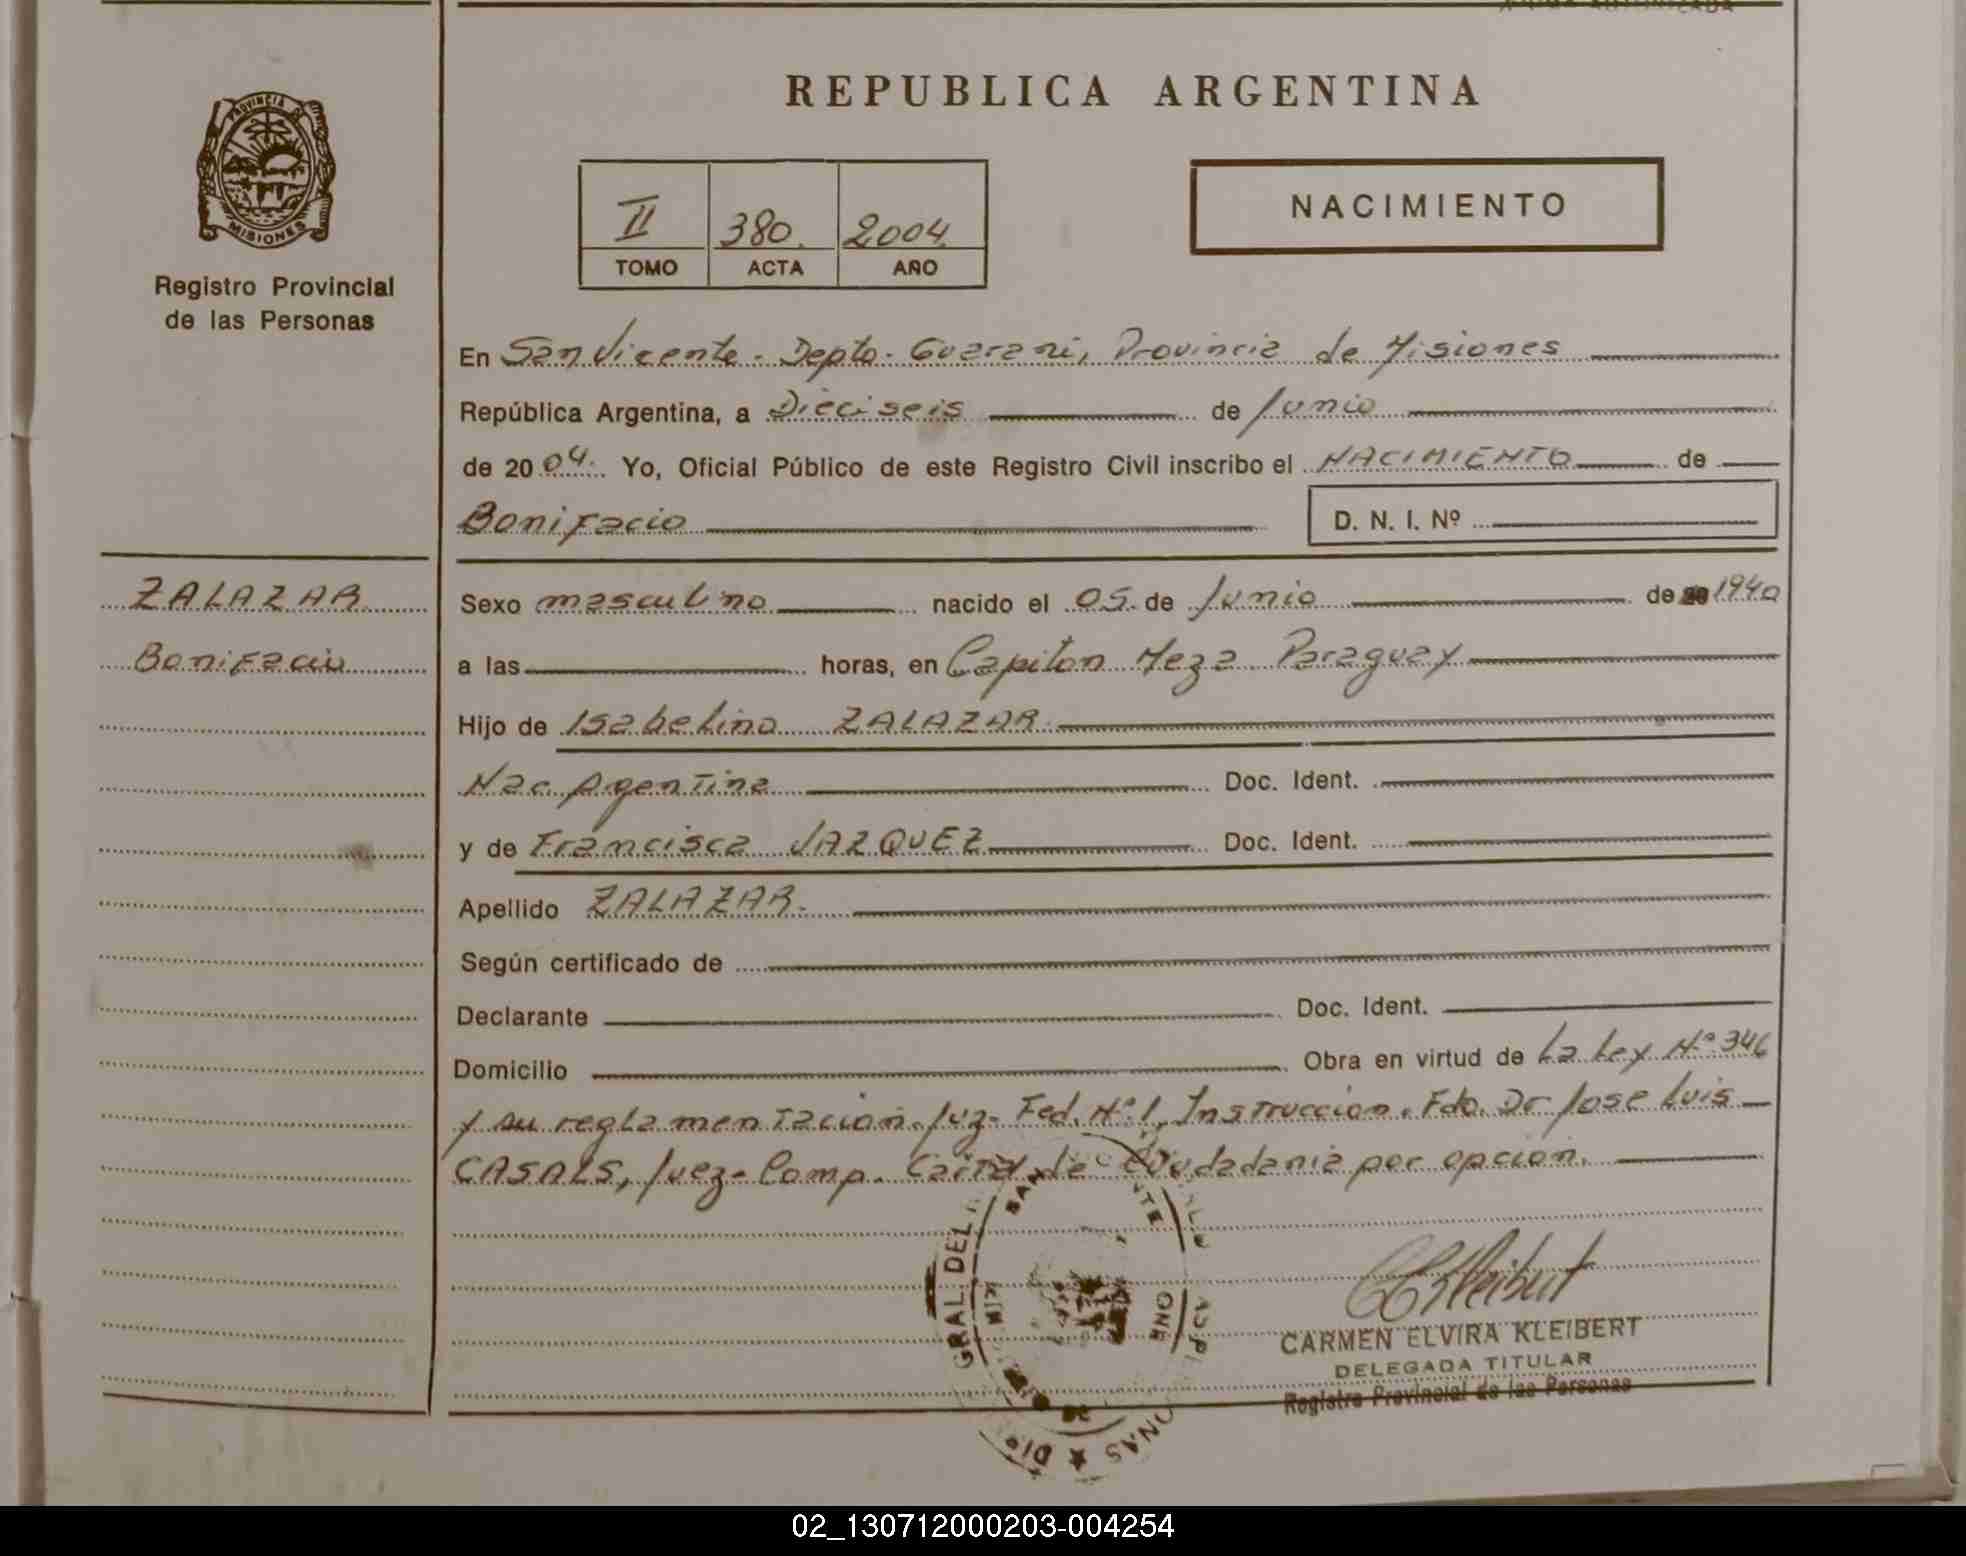 REPUBLICA ARGENTINA
PROVINCIA DE
MISIONES
Registro Provincial
de las Personas
II 380. 2004
TOMO ACTA AÑO
NACIMIENTO
En San Vicente - Depto. Guarani, Provincia de Misiones
República Argentina, a Dieciseis de Junio
de 2004. Yo, Oficial Público de este Registro Civil inscribo el NACIMIENTO de
Bonifacio D. N. I. Nº
ZALAZAR
Bonifacio
Sexo masculino nacido el 05 de Junio de 1940
a las horas, en Capitan Meza Paraguay
Hijo de Isabelino ZALAZAR
Nac. Agentina Doc. Ident.
y de Francisca VAZQUEZ Doc. Ident.
Apellido ZALAZAR.
Según certificado de
Declarante Doc. Ident.
Domicilio Obra en virtud de La Ley Nº 346
y su reglamentacion. Juz. Fed. Nº 1, Instruccion. Fdo. Dr Jose Luis
CASALS, Juez - Comp. Carta de Ciudadania por opcion.
GRAL. DEL
CARMEN ELVIRA KLEIBERT
DELEGADA TITULAR
Registro Provincial de las Personas
02_130712000203-004254